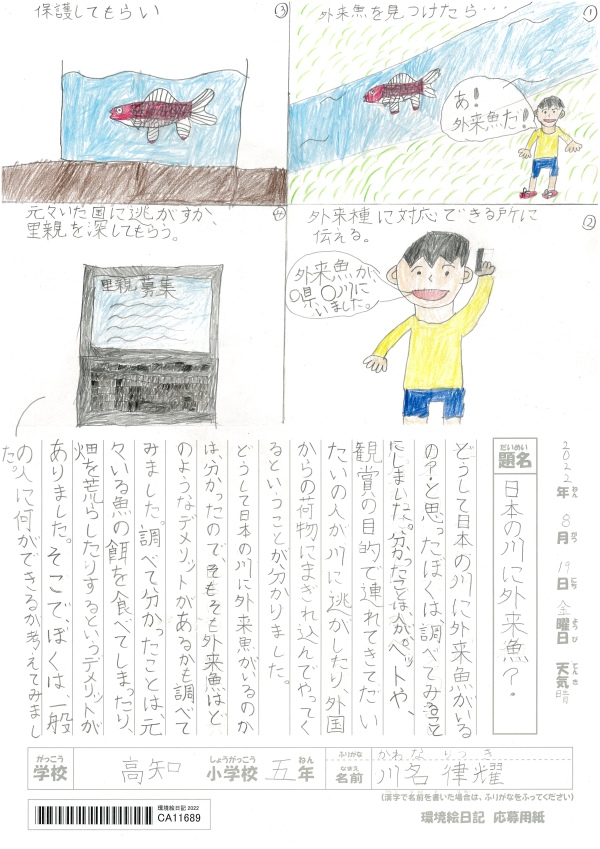 外来魚を見つけたら・・・
①
あ！
外来魚だ！
外来種に対応できる所に
伝える。
②
外来魚が、
〇県〇川に
いました。
保護してもらい
③
元々いた国に逃がすか、
里親を探してもらう。
④
里親募集
2022年8月19日金曜日 天気晴
ねん がつ にち ようび てんき
だいめい
題名
日本の川に外来魚？
どうして日本の川に外来魚がいる
の？と思ったぼくは、調べてみること
にしまいた。分かったことは、人が、ペットや、
観賞の目的で連れてきてだい
たいの人が川に逃がしたり、外国
からの荷物にまぎれ込んでやってく
るということが、分かりました。
どうして日本の川に外来魚がいるのか
は、分かったので、そもそも外来魚はど
のようなデメリットがあるかも調べて
みました。調べて、分かったことは、元
々いる魚の餌を食べてしまったり、
畑を荒らしたりするというデメリットが
ありました。そこで、ぼくは一般
の人に何ができるか考えてみまし
た。
がっこう しょうがっこう ねん
学校 高知 小学校 五年
ふりがな かわな りつき
なまえ
名前 川名 律耀
(漢字で名前を書いた場合は、ふりがなをふってください)
環境絵日記 2022
CA11689
環境絵日記 応募用紙